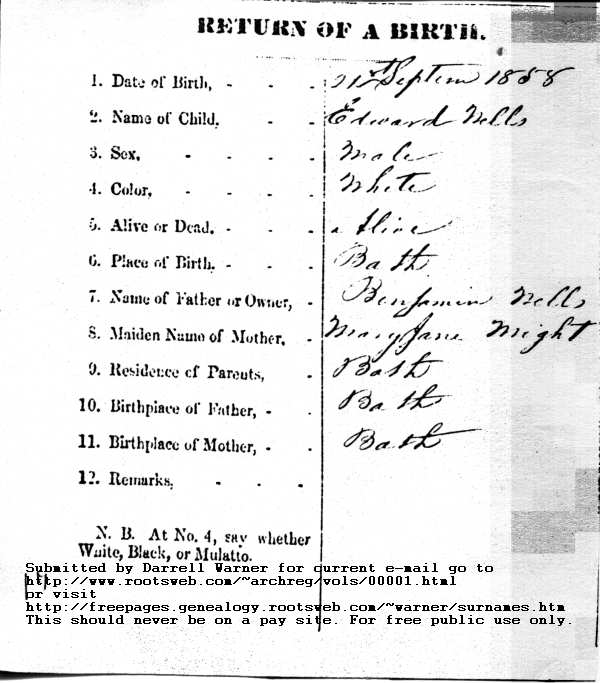 RETURN OF A BIRTH.
1. Date of Birth, - - - 21st Septem 1858
2. Name of Child, - - Edward Wells
3. Sex, - - - - Male
4. Color, - - - - White
5. Alive or Dead, - - - Alive
6. Place of Birth, - - - Bath
7. Name of Father or Owner, - Benjamin Wells
8. Maiden Name of Mother, - Mary Jane
9. Residence of Parents, - Bath
10. Birthplace of Father, - - Bath
11. Birthplace of Mother, - - Bath
12. Remarks, - - -
N. B. At No. 4, say whether
White, Black, or Mulatto.
Submitted by Darrell Warner for current e-mail go to
http://www.rootsweb.com/~archreg/vols/00001.html
or visit
http://freepages.genealogy.rootsweb.com/~warner/surnames.htm
This should never be on a pay site. For free public use only.